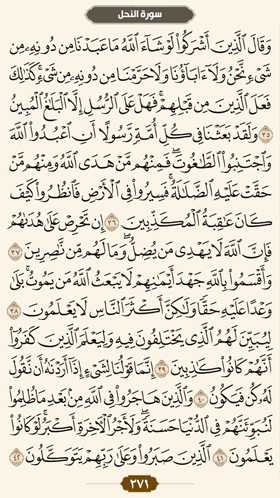 سورة النحل
وَقَالَ ٱلَّذِينَ أَشۡرَكُواْ لَوۡ شَآءَ ٱللَّهُ مَا عَبَدۡنَا مِن دُونِهِۦ مِن
شَيۡءٖ نَّحۡنُ وَلَآ ءَابَآؤُنَا وَلَا حَرَّمۡنَا مِن دُونِهِۦ مِن شَيۡءٖۚ كَذَٰلِكَ
فَعَلَ ٱلَّذِينَ مِن قَبۡلِهِمۡۚ فَهَلۡ عَلَى ٱلرُّسُلِ إِلَّا ٱلۡبَلَٰغُ ٱلۡمُبِينُ
٣٥ وَلَقَدۡ بَعَثۡنَا فِي كُلِّ أُمَّةٖ رَّسُولًا أَنِ ٱعۡبُدُواْ ٱللَّهَ
وَٱجۡتَنِبُواْ ٱلطَّٰغُوتَۖ فَمِنۡهُم مَّنۡ هَدَى ٱللَّهُ وَمِنۡهُم مَّنۡ
حَقَّتۡ عَلَيۡهِ ٱلضَّلَٰلَةُۚ فَسِيرُواْ فِي ٱلۡأَرۡضِ فَٱنظُرُواْ كَيۡفَ
كَانَ عَٰقِبَةُ ٱلۡمُكَذِّبِينَ ٣٦ إِن تَحۡرِصۡ عَلَىٰ هُدَىٰهُمۡ
فَإِنَّ ٱللَّهَ لَا يَهۡدِي مَن يُضِلُّۖ وَمَا لَهُم مِّن نَّٰصِرِينَ ٣٧
وَأَقۡسَمُواْ بِٱللَّهِ جَهۡدَ أَيۡمَٰنِهِمۡ لَا يَبۡعَثُ ٱللَّهُ مَن يَمُوتُۚ بَلَىٰ
وَعۡدًا عَلَيۡهِ حَقّٗا وَلَٰكِنَّ أَكۡثَرَ ٱلنَّاسِ لَا يَعۡلَمُونَ ٣٨
لِيُبَيِّنَ لَهُمُ ٱلَّذِي يَخۡتَلِفُونَ فِيهِ وَلِيَعۡلَمَ ٱلَّذِينَ كَفَرُوٓاْ
أَنَّهُمۡ كَانُواْ كَٰذِبِينَ ٣٩ إِنَّمَا قَوۡلُنَا لِشَيۡءٍ إِذَآ أَرَدۡنَٰهُ أَن نَّقُولَ
لَهُۥ كُن فَيَكُونُ ٤٠ وَٱلَّذِينَ هَاجَرُواْ فِي ٱللَّهِ مِنۢ بَعۡدِ مَا ظُلِمُواْ
لَنُبَوِّئَنَّهُمۡ فِي ٱلدُّنۡيَا حَسَنَةٗۖ وَلَأَجۡرُ ٱلۡأٓخِرَةِ أَكۡبَرُۚ لَوۡ كَانُواْ
يَعۡلَمُونَ ٤١ ٱلَّذِينَ صَبَرُواْ وَعَلَىٰ رَبِّهِمۡ يَتَوَكَّلُونَ ٤٢
٢٧١